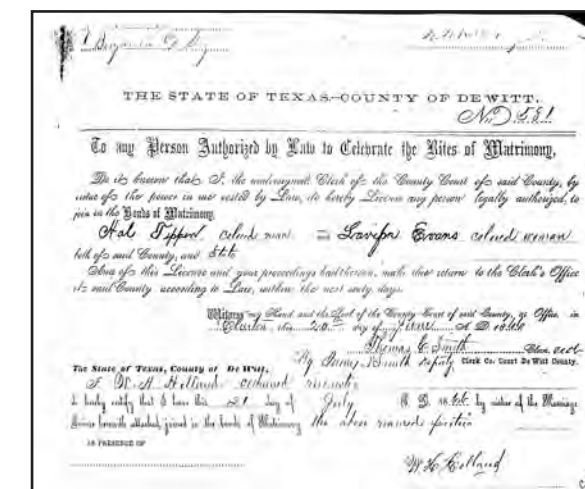 Benjamin
THE STATE OF TEXAS--COUNTY OF DEWITT.
No 581
To any Person Authorized by Law to Celebrate the Rites of Matrimony,
Be it known that I, the undersigned Clerk of the County Court of said County, by
virtue of the power in me vested by Law, do hereby License any person legally authorized, to
join in the Bonds of Matrimony
Hal Tippen colored man Evans colored woman
both of said County, and State
And of this License and your proceedings had thereon, make due return to the Clerk's Office
of said County according to Law, within the next sixty days.
Witness my Hand and the Seal of the County Court of said County, at Office, in
Clinton this 20 day of June A. D.
Thomas C. Smith Clerk
By Smith Deputy Clerk Co. Court De Witt County.
The State of Texas, County of De Witt,
I W. H. Holland ordained minister
do hereby certify that I have this 21 day of July A. D. by virtue of the Marriage
License herewith attached, joined in the bonds of Matrimony the above named parties
IN PRESENCE OF
W. H. Holland